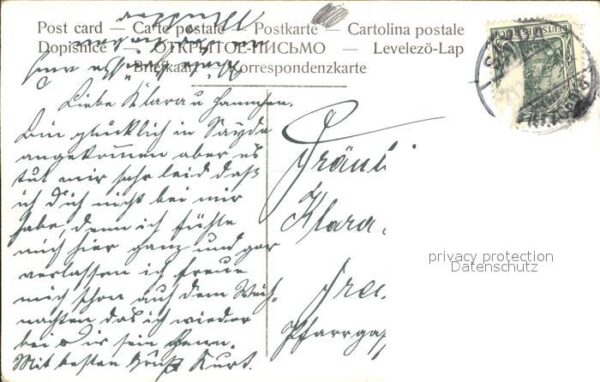 Post card — Carte postale — Postkarte — Cartolina postale
Dopisnice — ОТКРЫТОЕ ПИСЬМО — Levelező-Lap
Briefkaart — Korrespondenzkarte
Liebe Klara u
Bin glücklich in Sayda
angekommen aber es
tut mir sehr leid daß
ich dich nicht bei mir
habe, denn ich fühle
mich hier ganz und gar
verlassen ich freue
mich schon auf dem Weih-
nachten das ich wieder
bei dir sein kann.
Mit besten Gruß Kurt.
Fräul
Klara
Frei
Pfarrgas
privacy protection
Datenschutz